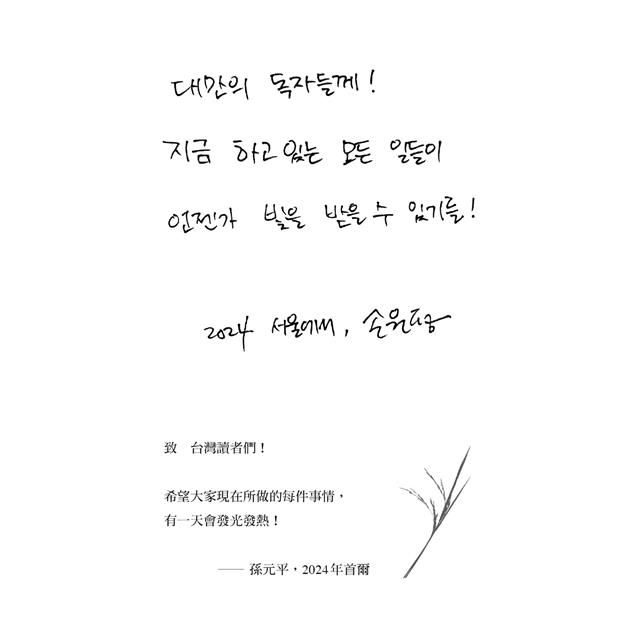 대만의 독자들께!
지금 하고 있는 모든 일들이
언젠가 빛을 받을 수 있기를!
2024 서울에서, 손원평
致 台灣讀者們！
希望大家現在所做的每件事情，
有一天會發光發熱！
—— 孫元平，2024年首爾